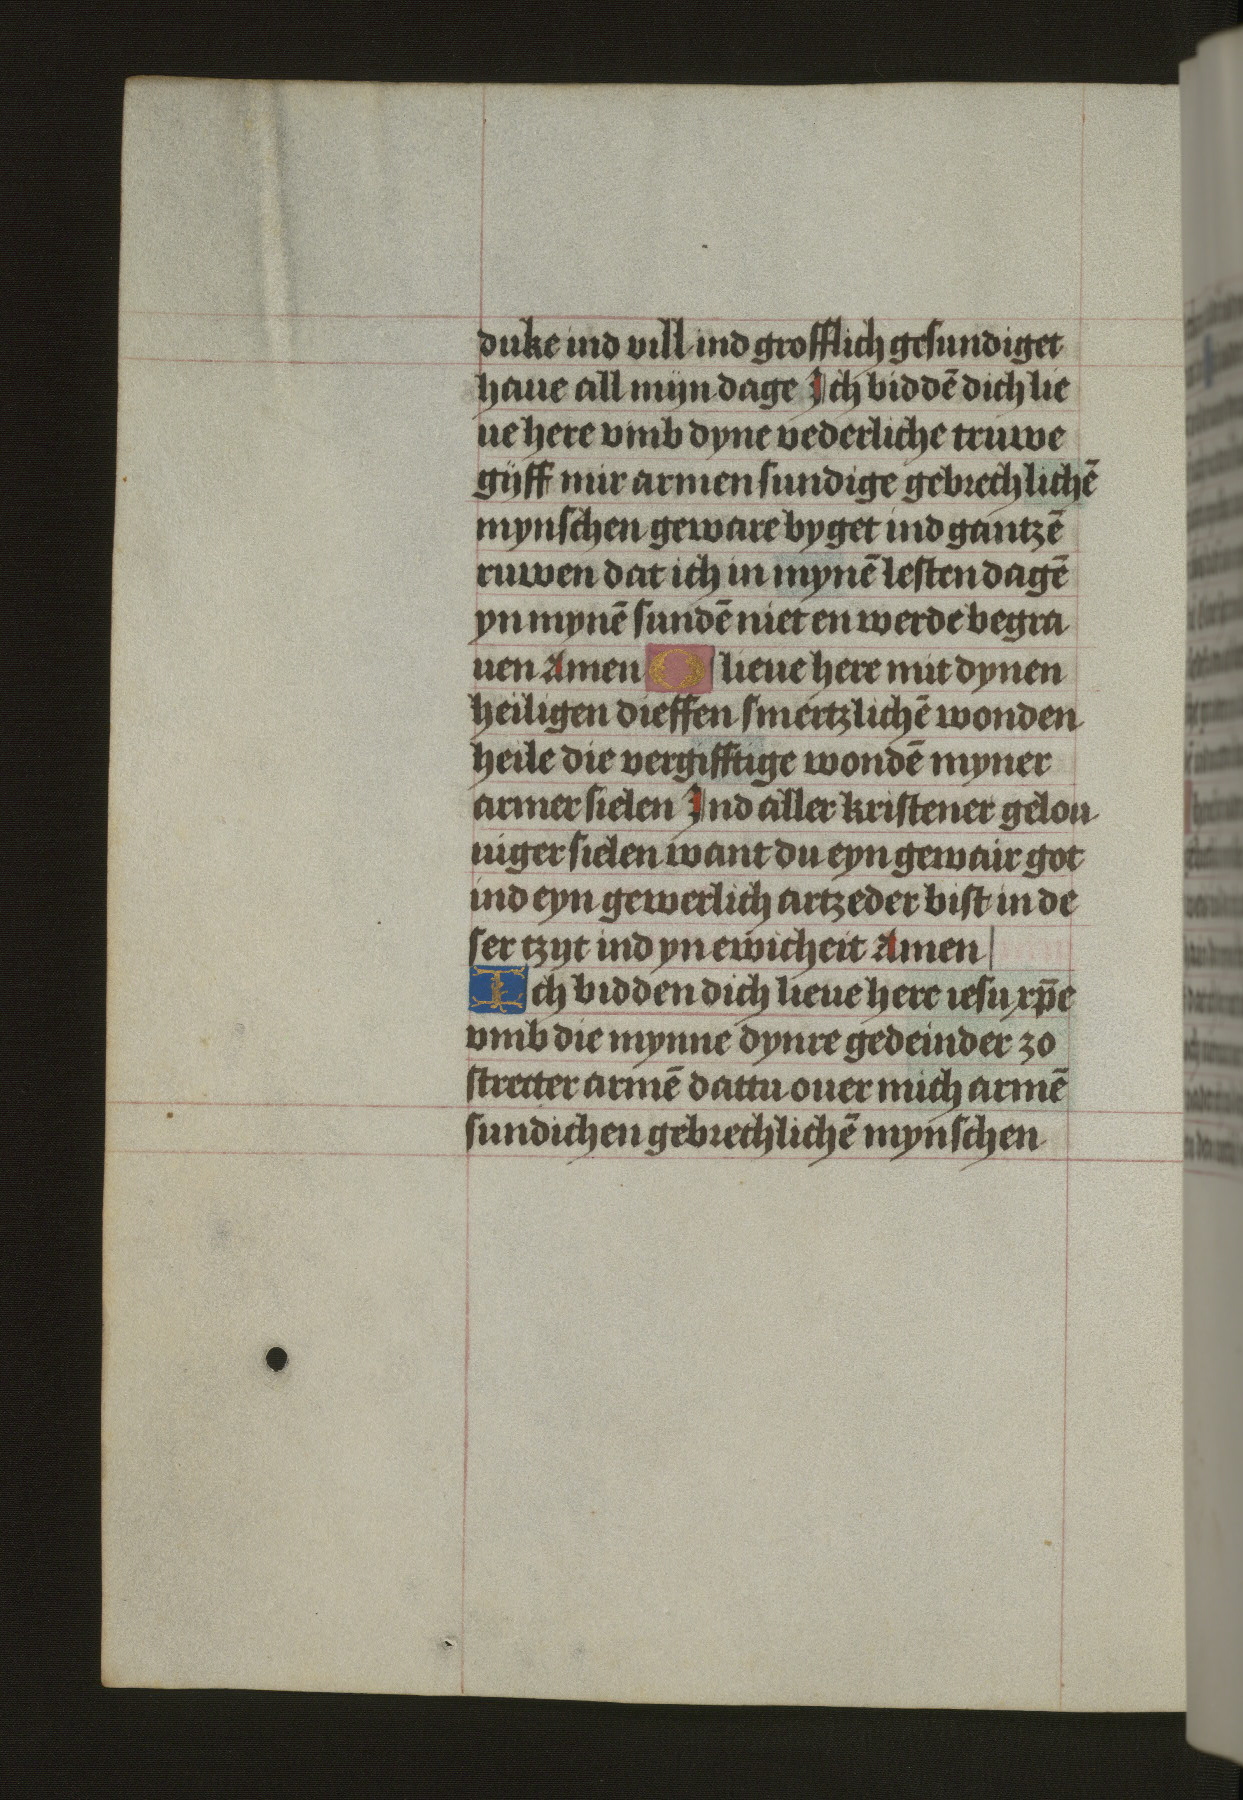 duke ind vill ind grofflich gesundiget
haue all mijn dage Ich biddē dich lie
ue here vmb dyne vederliche truwe
gijff mir armen sundige gebrechlichē
mynschen geware byget ind gantzē
ruwen dat ich in mynē lesten dagē
yn mynē sundē niet en werde begra
uen Amen O lieue here mit dynen
heiligen dieffen smertzlichē wonden
heile die vergifftige wondē myner
armer sielen Ind aller kristener gelou
uiger sielen want du eyn gewair got
ind eyn gewerlich artzeder bist in de
ser tzyt ind yn ewicheit Amen
Ich bidden dich lieue here iesu xp̄e
vmb die mynne dynre gedeinder zo
strecter armē dattu ouer mich armē
sundichen gebrechlichē mynschen